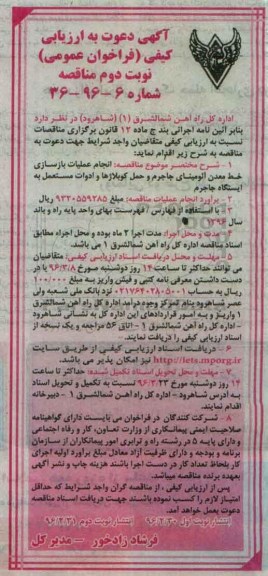 آگهی دعوت به ارزیابی
کیفی (فراخوان عمومی)
نوبت دوم مناقصه
شماره ۶-۹۶-۳۶
اداره کل راه آهن شمالشرق (۱) (شاهرود) در نظر دارد
بنابر آئین نامه اجرائی بند ج ماده ۱۲ قانون برگزاری مناقصات
نسبت به ارزیابی کیفی متقاضیان واجد شرایط جهت دعوت به
مناقصه به شرح زیر اقدام نماید:
۱- شرح مختصر موضوع مناقصه: انجام عملیات بازسازی
خط معدن آلومینای جاجرم و حمل کوپلاژها و ادوات مستعمل به
ایستگاه جاجرم
۲- برآورد انجام عملیات مناقصه: مبلغ ۹۳۲۰۵۵۹۲۸۵ ریال
۳- با استفاده از فهارس / فهرست بهای واحد پایه راه و باند
سال
۴- مدت و محل اجرا: مدت اجرا ۲ ماه بوده و محل اجراء مطابق
اسناد مناقصه اداره کل راه آهن شمالشرق ۱ می باشد.
۵- مهلت و محل دریافت اسناد ارزیابی کیفی: متقاضیان
می توانند حداکثر تا ساعت ۱۴ روز دوشنبه مورخ ۹۶/۳/۸ با در
دست داشتن معرفی نامه کتبی و فیش واریز به مبلغ ۱۰۰/۰۰۰
ریال به حساب نزد بانک ملی شعبه ولی
عصر شاهرود بنام تمرکز وجوه درآمد اداره کل راه آهن شمالشرق
۱ واریز و به امور قراردادهای این اداره کل به نشانی شاهرود
- اداره کل راه آهن شمالشرق ۱ - اتاق ۵۶ مراجعه و یک نسخه از
اسناد ارزیابی کیفی را دریافت نمایند.
۶- دریافت اسناد ارزیابی کیفی از طریق سایت
http://iets.mporg.ir نیز امکان پذیر می باشد.
۷- مهلت و محل تحویل اسناد تکمیل شده: حداکثر تا ساعت
۱۴ روز دوشنبه مورخ ۹۶/۳/۲۲ نسبت به تکمیل و تحویل اسناد
به آدرس شاهرود - اداره کل راه آهن شمالشرق ۱ - دبیرخانه
اقدام نمایند.
۸- شرکت کنندگان در فراخوان می بایست دارای گواهینامه
صلاحیت ایمنی پیمانکاری از وزارت تعاون، کار و رفاه اجتماعی
و دارای پایه ۵ در رشته راه و ترابری امور پیمانکاران از سازمان
برنامه و بودجه و دارای ظرفیت آزاد معادل مبلغ برآورد اولیه اجرای
کار بلحاظ تعداد کار در دست اجرا باشند هزینه چاپ و نشر آگهی
بعهده برنده مناقصه میباشد.
پس از ارزیابی کیفی، از مناقصه گران واجد شرایط که حداقل
امتیاز لازم را کسب نموده باشند جهت دریافت اسناد مناقصه
دعوت بعمل خواهد آمد.
انتشار نوبت اول ۹۶/۲/۳۰ انتشار نوبت دوم ۹۶/۲/۳۱
فرشاد زادخور - مدیر کل